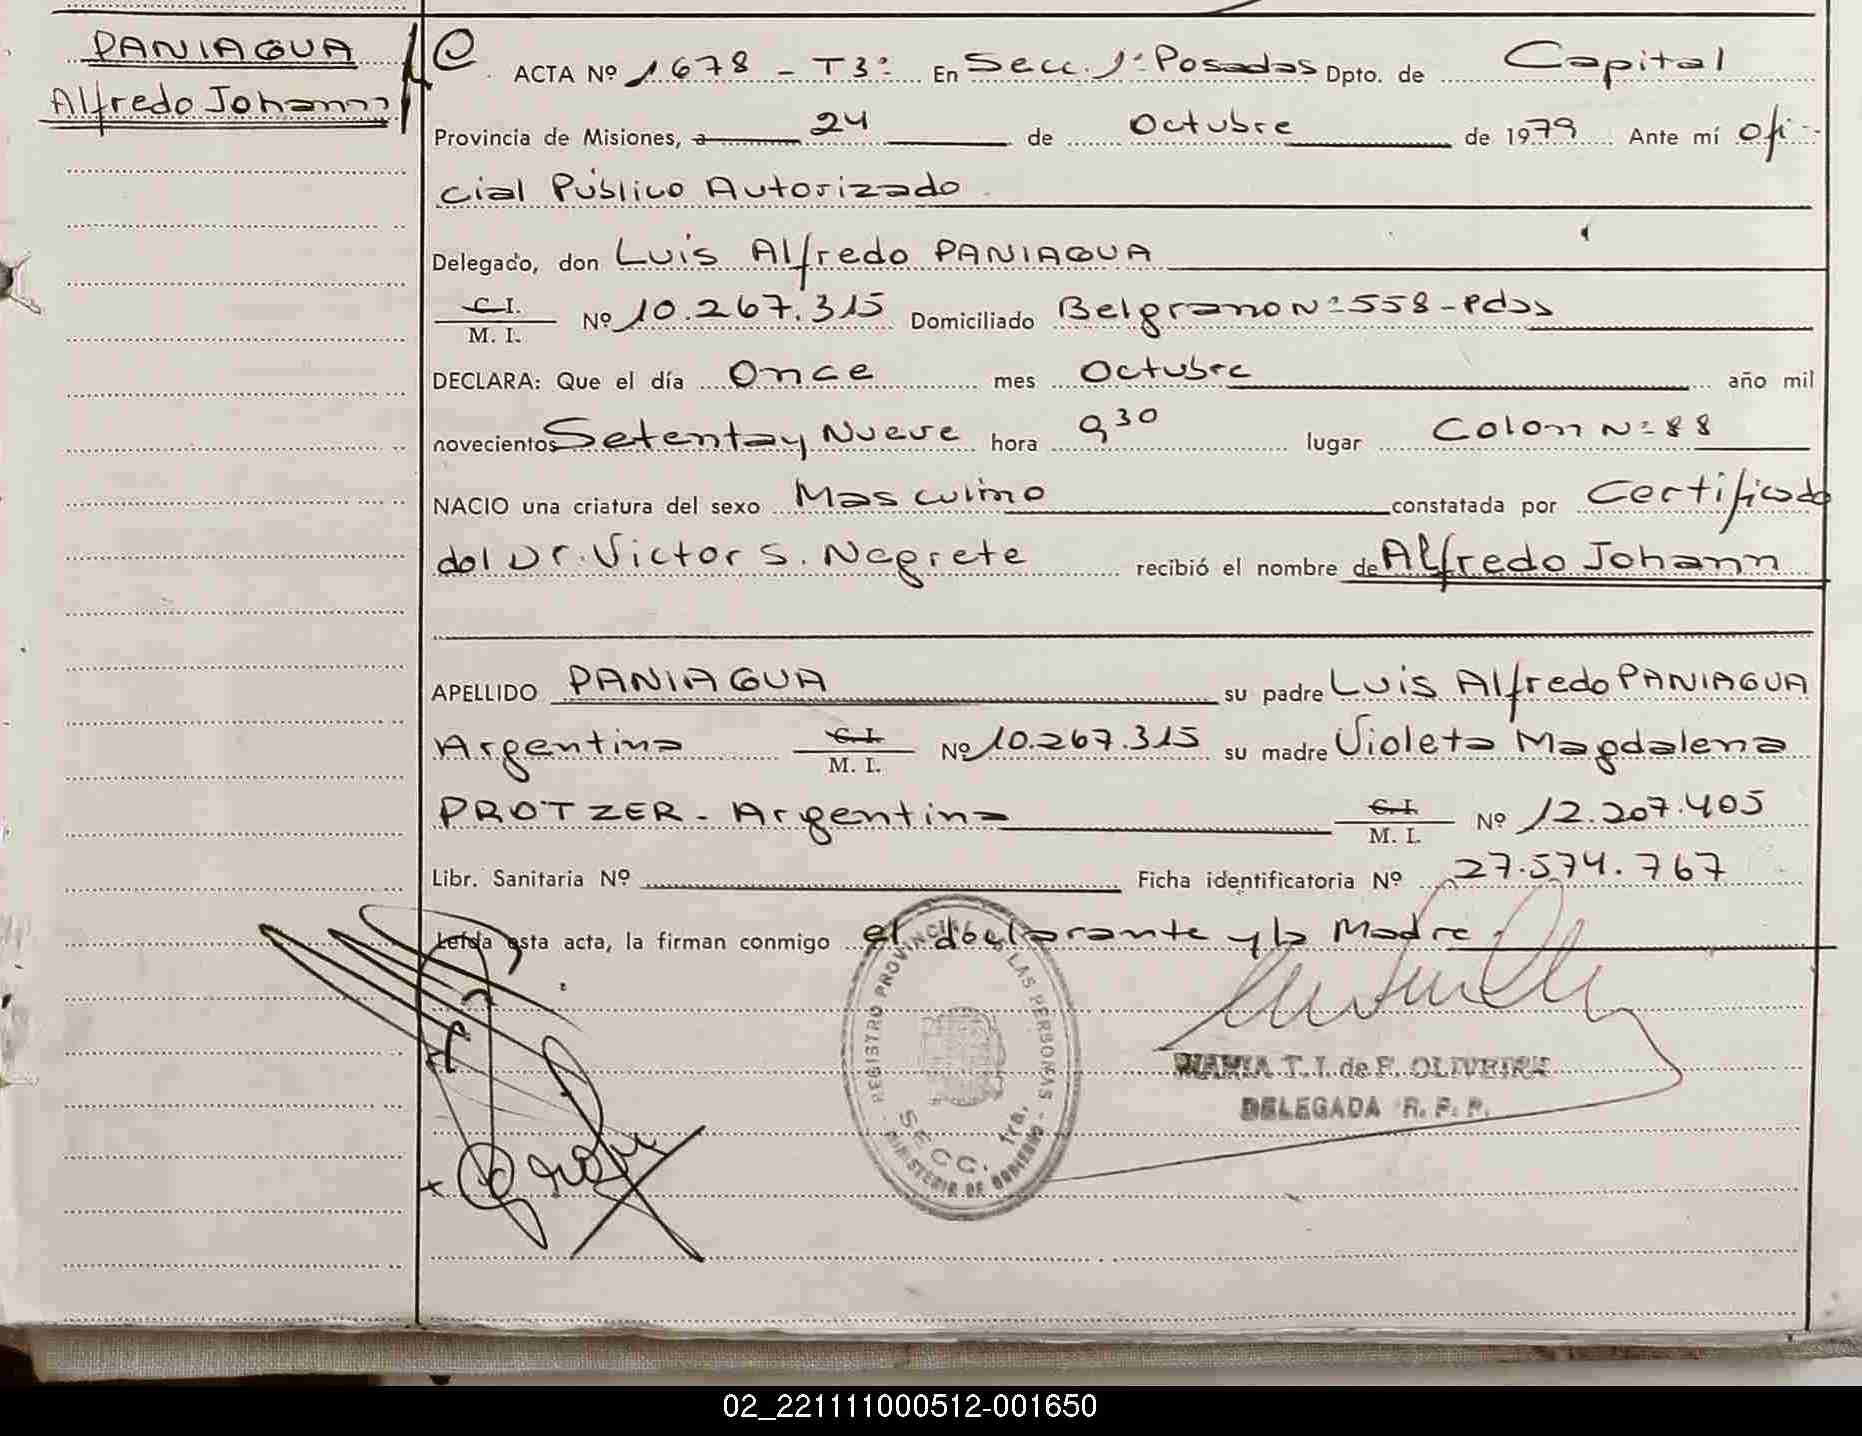 PANIAGUA
Alfredo Johann
ACTA Nº 1678 - T3º En Secc. 1ª Posadas Dpto. de Capital
Provincia de Misiones, a 24 de Octubre de 1979 Ante mí ofi-
cial Público Autorizado
Delegado, don Luis Alfredo PANIAGUA
C.I. M. I. Nº 10.267.315 Domiciliado Belgrano Nº 558 - Pdas
DECLARA: Que el día Once mes Octubre año mil
novecientos Setenta y Nueve hora 9 30 lugar Colon Nº 88
NACIO una criatura del sexo Masculino constatada por Certificado
del Dr. Victor S. Negrete recibió el nombre de Alfredo Johann
APELLIDO PANIAGUA su padre Luis Alfredo PANIAGUA
Argentino C.I. M. I. Nº 10.267.315 su madre Violeta Magdalena
PROTZER - Argentina C.I. M. I. Nº 12.207.405
Libr. Sanitaria Nº Ficha identificatoria Nº 27.574.767
Leída esta acta, la firman conmigo el declarante y la Madre.
REGISTRO PROVINCIAL DE LAS PERSONAS
SECC. 1ra.
MINISTERIO DE GOBIERNO
MARIA T. I. de F. OLIVEIRA
DELEGADA R. P. P.
02_221111000512-001650